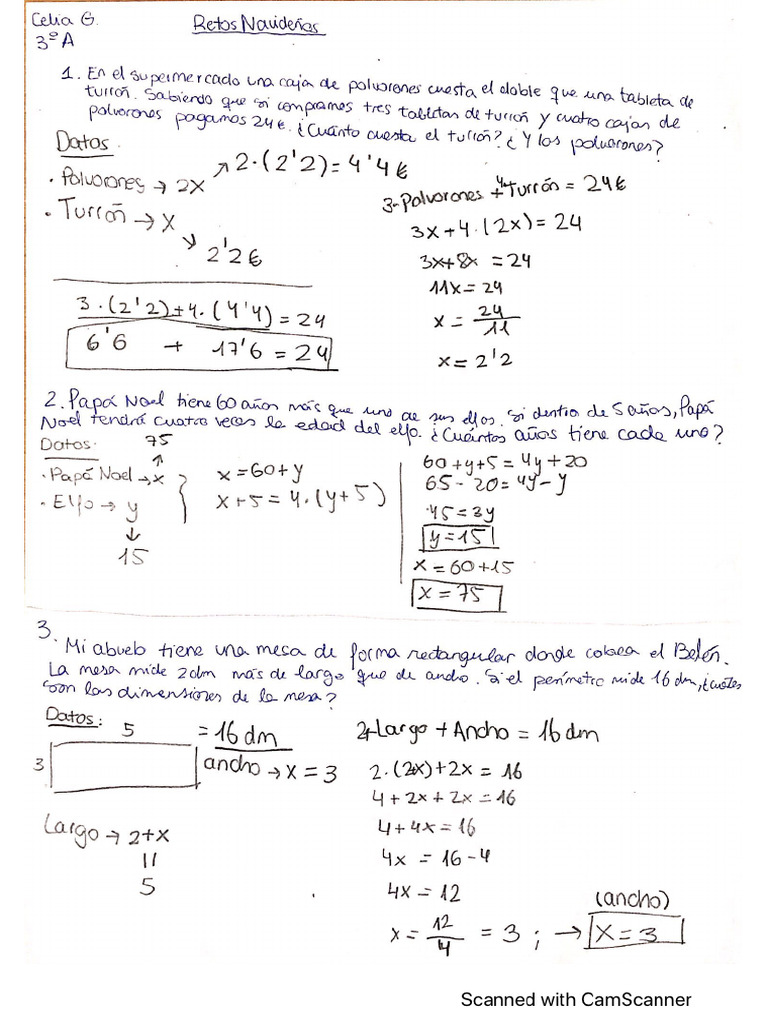 Celia G.
3º A
Retos Navideños
1. En el supermercado una caja de polvorones cuesta el doble que una tableta de
turrón. Sabiendo que si compramos tres tabletas de turrón y cuatro cajas de
polvorones pagamos 24€. ¿Cuánto cuesta el turrón? ¿Y los polvorones?
Datos
· Polvorones → 2x ↗ 2·(2'2) = 4'4€
· Turrón → x
↘ 2'2€
3·(2'2)+4·(4'4) = 24
6'6 + 17'6 = 24
3·Polvorones + 4·Turrón = 24€
3x+4·(2x) = 24
3x+8x = 24
11x = 24
x = 24/11
x = 2'2
2. Papá Noel tiene 60 años más que uno de sus elfos. Si dentro de 5 años, Papá
Noel tendrá cuatro veces la edad del elfo. ¿Cuántos años tiene cada uno?
Datos:
75
↑
· Papá Noel → x
· Elfo → y
↓
15
x = 60+y
x+5 = 4·(y+5)
60+y+5 = 4y+20
65-20 = 4y-y
45 = 3y
y = 15
x = 60+15
x = 75
3. Mi abuelo tiene una mesa de forma rectangular donde coloca el Belén.
La mesa mide 2dm más de largo que de ancho. Si el perímetro mide 16 dm, ¿cuáles
son las dimensiones de la mesa?
Datos:
5
3
= 16 dm
ancho → x = 3
Largo → 2+x
11
5
2+Largo + Ancho = 16 dm
2·(2+x)+2x = 16
4+2x+2x = 16
4+4x = 16
4x = 16-4
4x = 12
x = 12/4 = 3 ; → x = 3
(ancho)
Scanned with CamScanner